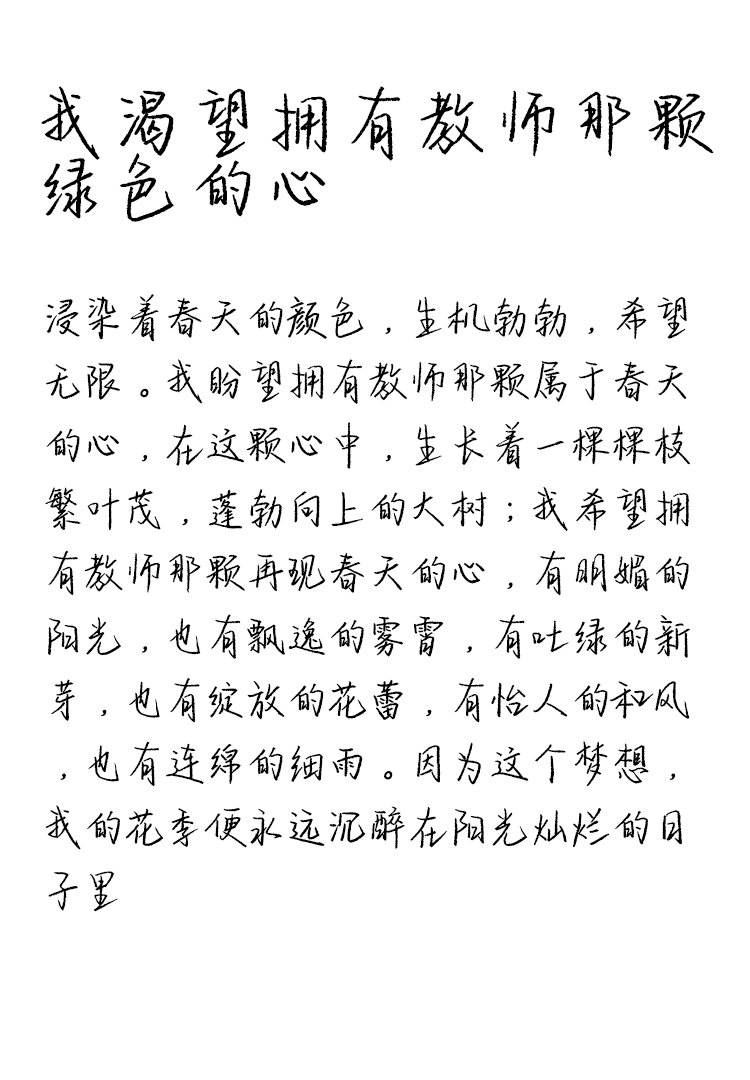 我渴望拥有教师那颗
绿色的心
浸染着春天的颜色，生机勃勃，希望
无限。我盼望拥有教师那颗属于春天
的心，在这颗心中，生长着一棵棵枝
繁叶茂，蓬勃向上的大树；我希望拥
有教师那颗再现春天的心，有明媚的
阳光，也有飘逸的雾霭，有吐绿的新
芽，也有绽放的花蕾，有怡人的和风
，也有连绵的细雨。因为这个梦想，
我的花季便永远沉醉在阳光灿烂的日
子里